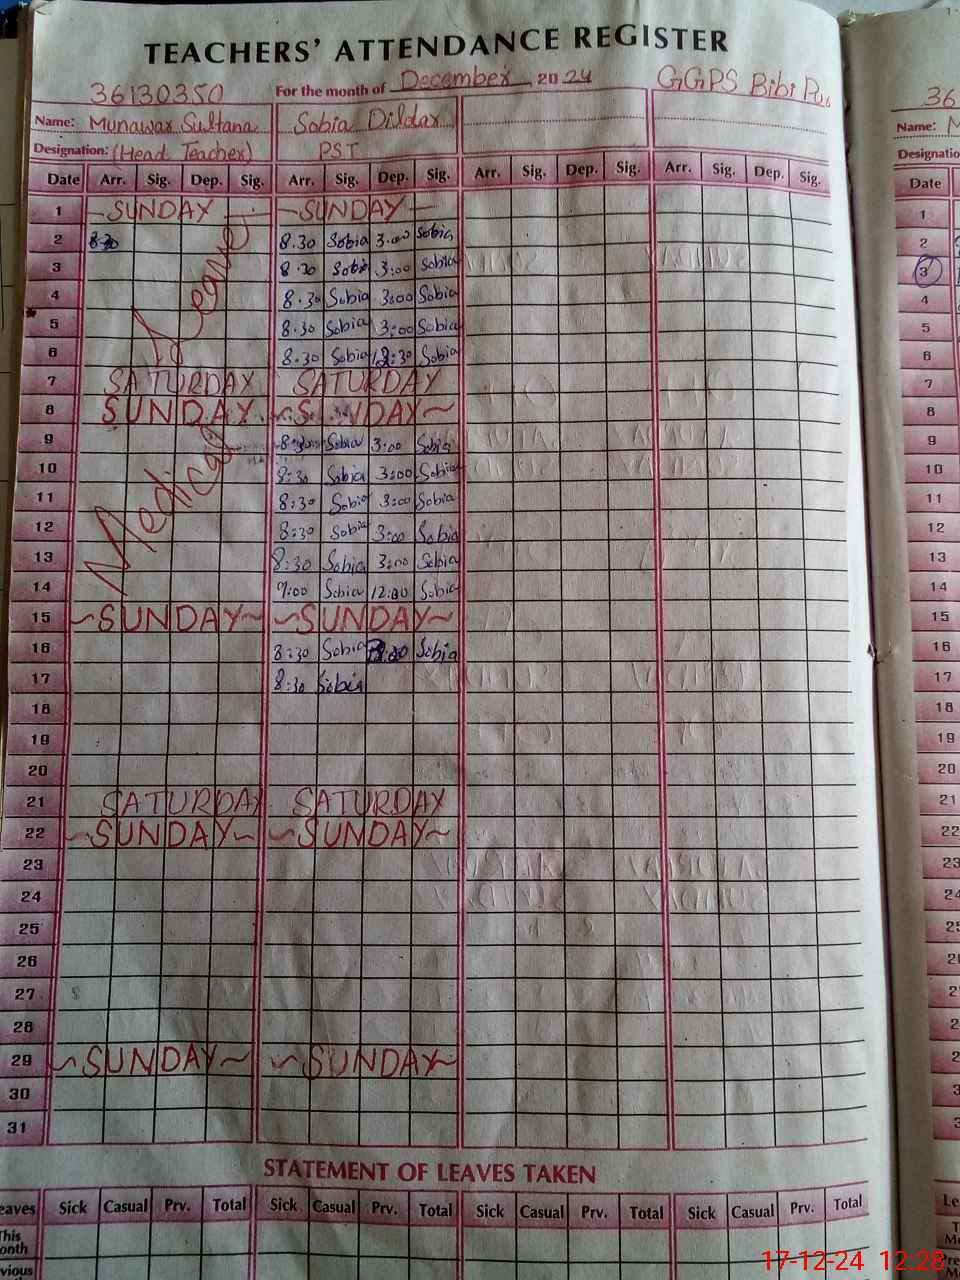 TEACHERS' ATTENDANCE REGISTER
36130350 For the month of December 2024 GGPS Bibi
Name: Munawar Sultana Sobia Dildar
Designation: (Head Teacher) PST
Date Arr. Sig. Dep. Sig. Arr. Sig. Dep. Sig. Arr. Sig. Dep. Sig. Arr. Sig. Dep. Sig.
1 -SUNDAY - -SUNDAY-
2 8:30 8.30 Sobia 3:00 Sobia
3 8.30 Sobia 3:00 Sobia
4 8.30 Sobia 3:00 Sobia
5 8.30 Sobia 3:00 Sobia
6 8.30 Sobia 12:30 Sobia
7 SATURDAY SATURDAY
8 SUNDAY ~SUNDAY~
9 8:30 Sobia 3:00 Sobia
10 8:30 Sobia 3:00 Sobia
11 8:30 Sobia 3:00 Sobia
12 8:30 Sobia 3:00 Sobia
13 8:30 Sobia 3:00 Sobia
14 9:00 Sobia 12:00 Sobia
Medical Leave
15 ~SUNDAY~ ~SUNDAY~
16 8:30 Sobia Sobia
17 8:30 Sobia
18
19
20
21 SATURDAY SATURDAY
22 ~SUNDAY~ ~SUNDAY~
23
24
25
26
27
28
29 ~SUNDAY~ ~SUNDAY~
30
31
STATEMENT OF LEAVES TAKEN
eaves Sick Casual Prv. Total Sick Casual Prv. Total Sick Casual Prv. Total Sick Casual Prv. Total
This
onth
vious
36
Name: M
Designatio
Date
1
2
3
4
5
6
7
8
9
10
11
12
13
14
15
16
17
18
19
20
21
22
23
24
Le
17-12-24 12:28